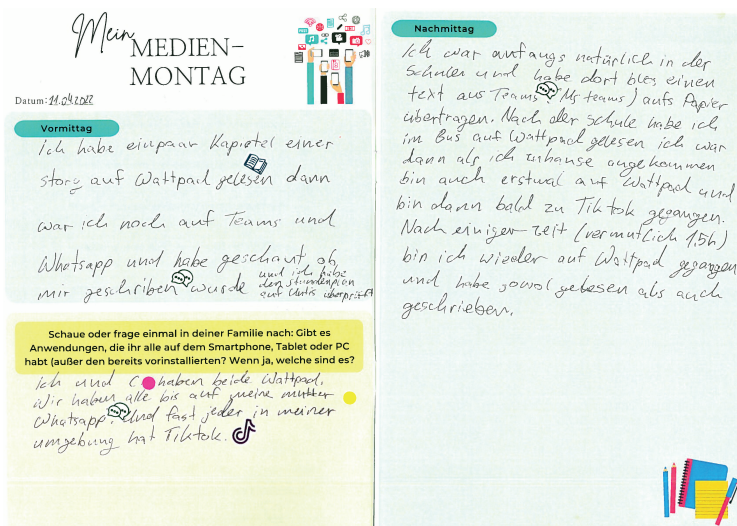 Mein
MEDIEN-
MONTAG
Datum: 11.04.2022
Vormittag
Ich habe einpaar Kapietel einer
story auf Wattpad gelesen dann
war ich noch auf Teams und
Whatsapp und habe geschaut, ob
mir geschriben wurde und ich habe
den stundenplan
auf Untis überprüft
Schaue oder frage einmal in deiner Familie nach: Gibt es
Anwendungen, die ihr alle auf dem Smartphone, Tablet oder PC
habt (außer den bereits vorinstallierten? Wenn ja, welche sind es?
Ich und C haben beide Wattpad.
Wir haben alle bis auf meine mutter
Whatsapp. Und fast jeder in meiner
umgebung hat Tiktok.
Nachmittag
Ich war anfangs natürlich in der
Schule und habe dort blos einen
text aus Teams (Ms teams) aufs Papier
übertragen. Nach der schule habe ich
im Bus auf Wattpad gelesen ich war
dann als ich zuhause angekommen
bin auch erstmal auf Wattpad und
bin dann bald zu Tiktok gegangen.
Nach einiger zeit (vermutlich 1,5h)
bin ich wieder auf Wattpad gegangen
und habe sowol gelesen als auch
geschrieben.